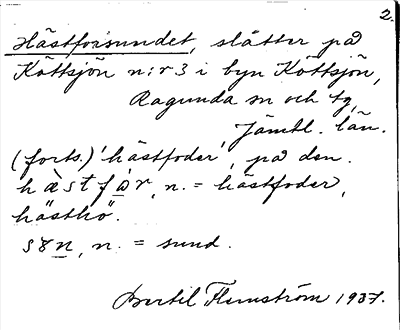 2.
Hästforsundet, slåtter på
Köttsjön n:r 3 i byn Köttsjön,
Ragunda sn och tg,
Jämtl. län.
(forts.) 'hästfoder', på den.
hæ̀stfòr, n. = hästfoder,
hästhö.
sɤn, n. = sund.
Bertil Flemström 1937.